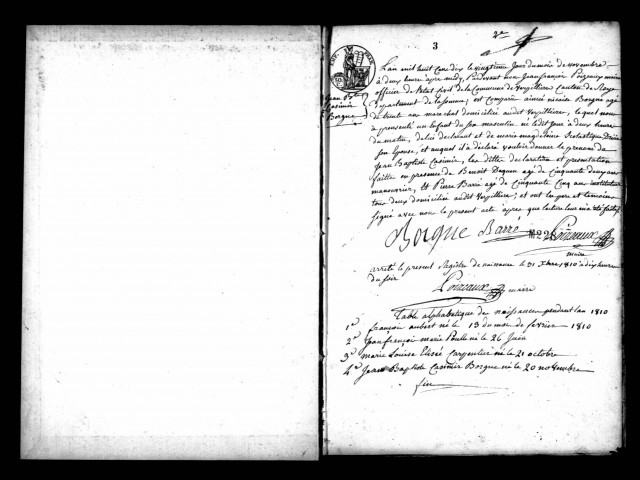 3
2e
Jean Bte
Casimir
Borgne
L'an mil huit cent dix le vingtieme jour du mois de novembre
à deux heure apres midy, Pardevant nous Jean françois
officier de l'état civil de la Commune de Verpilliere Canton de Roye
Département de la Somme, est Comparu aimé nicaise Borgne agé
de trente ans marchat domicilié audit Verpilliere, lequel nous
a présenté un Enfant du Sexe masculin né le dit jour à deux heure
du matin, de lui déclarant et de marie magdelaine Scolastique
son Epouse, et auquel il a déclaré vouloir donner le prenom de
Jean Baptiste Casimir, les dittes déclaration et présentation
faitte en presence de Benoit agé de Cinquante deux ans
manouvrier, et Pierre Barré agé de Cinquante Cinq ans instituteur
tous deux domicilié audit Verpilliere; et ont les pere et temoins
signé avec nous le present acte apres que lecture leur en a été fait
Borgne Barré
maire
arreté le present Registre de naissance le 31 Xbre 1810 à dix heures
du soir
maire
Table alphabetique des naissances pendant lan 1810
1e françois aubert né le 13 du mois de fevrier 1810
2e Jean françois marie né le 26 Juin
3e Marie Louise Elisée Carpentier né le 21 octobre
4e Jean Baptiste Casimir Borgne né le 20 novembre
fin